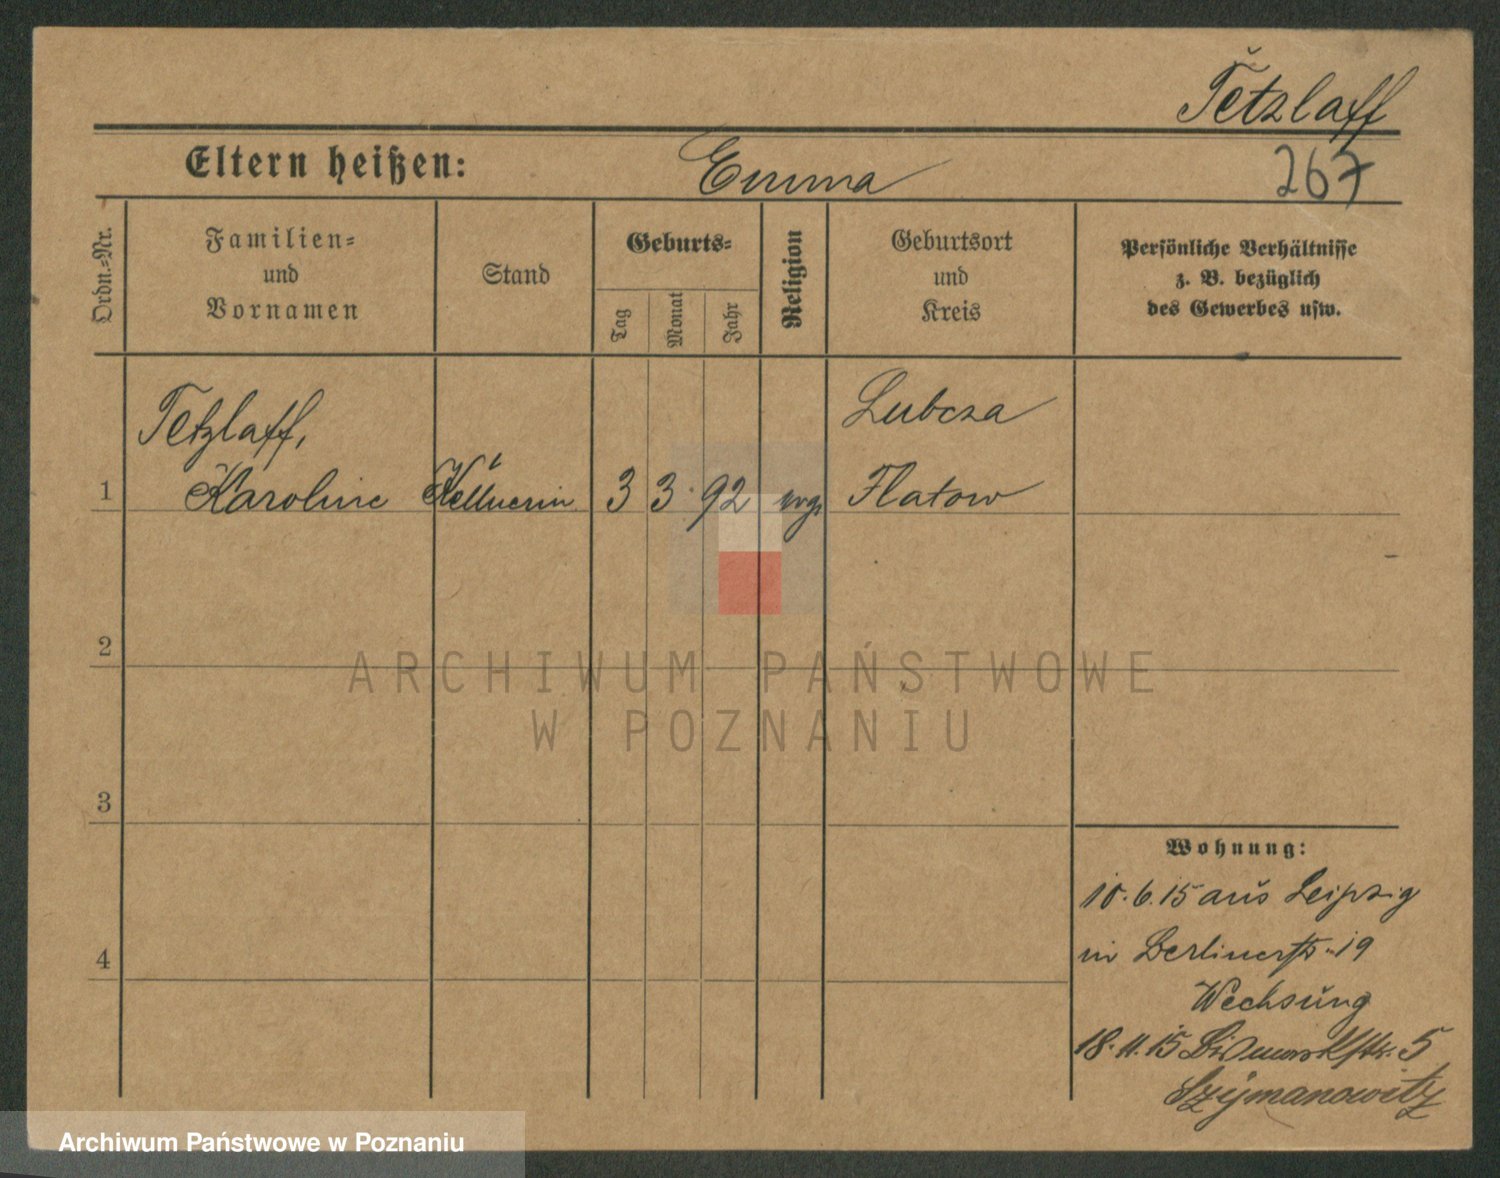 Tetzlaff
Eltern heißen: Emma 267
Ordn.-Nr.
Familien-
und
Vornamen
Stand
Geburts-
Tag
Monat
Jahr
Religion
Geburtsort
und
Kreis
Persönliche Verhältnisse
z. B. bezüglich
des Gewerbes usw.
Tetzlaff, Lubcza
1 Karoline Kellnerin 3 3. 92 evgl. Flatow
2
ARCHIWUM PAŃSTWOWE
W POZNANIU
3
Wohnung:
10.6.15 aus Leipzig
in Berlinerstr. 19
4
18.11.15 Bismarckstr. 5
Szymanowitz
Archiwum Państwowe w Poznaniu